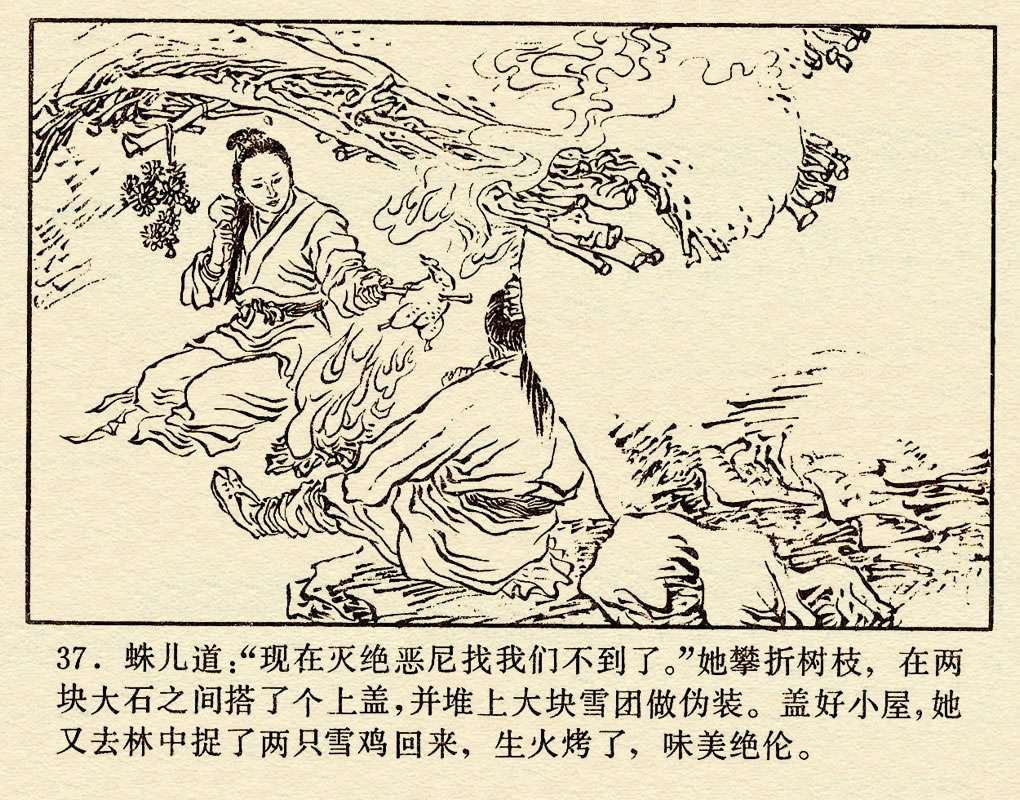 37. 蛛儿道:“现在灭绝恶尼找我们不到了。”她攀折树枝，在两
块大石之间搭了个上盖，并堆上大块雪团做伪装。盖好小屋，她
又去林中捉了两只雪鸡回来，生火烤了，味美绝伦。